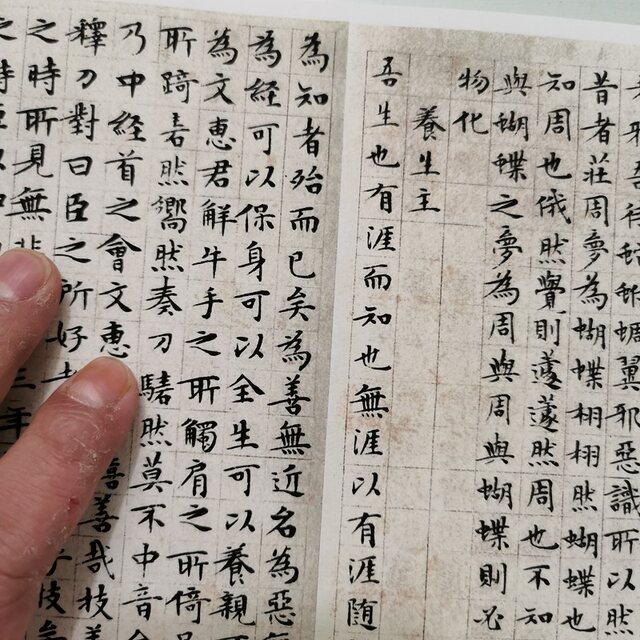 邪吾待蛇蚹蜩翼邪惡識所以然
昔者莊周夢為蝴蝶栩栩然蝴蝶也
知周也俄然覺則蘧蘧然周也不知
與蝴蝶之夢為周與周與蝴蝶則必
物化
養生主
吾生也有涯而知也無涯以有涯隨
為知者殆而已矣為善無近名為惡
為經可以保身可以全生可以養親
為文惠君解牛手之所觸肩之所倚足
所踦砉然嚮然奏刀騞然莫不中音
乃中經首之會文惠善哉技
釋刀對曰臣之所好
之時所見無非三年